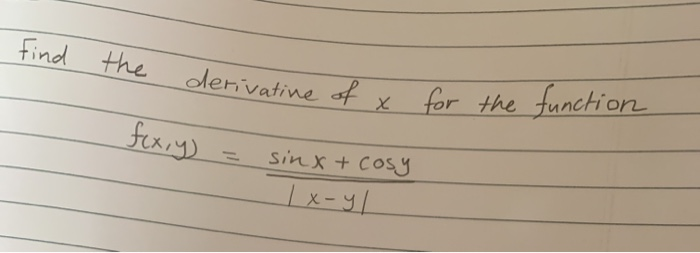 Find the derivative of x for the function
f(x,y) = sinx + cosy / |x-y|